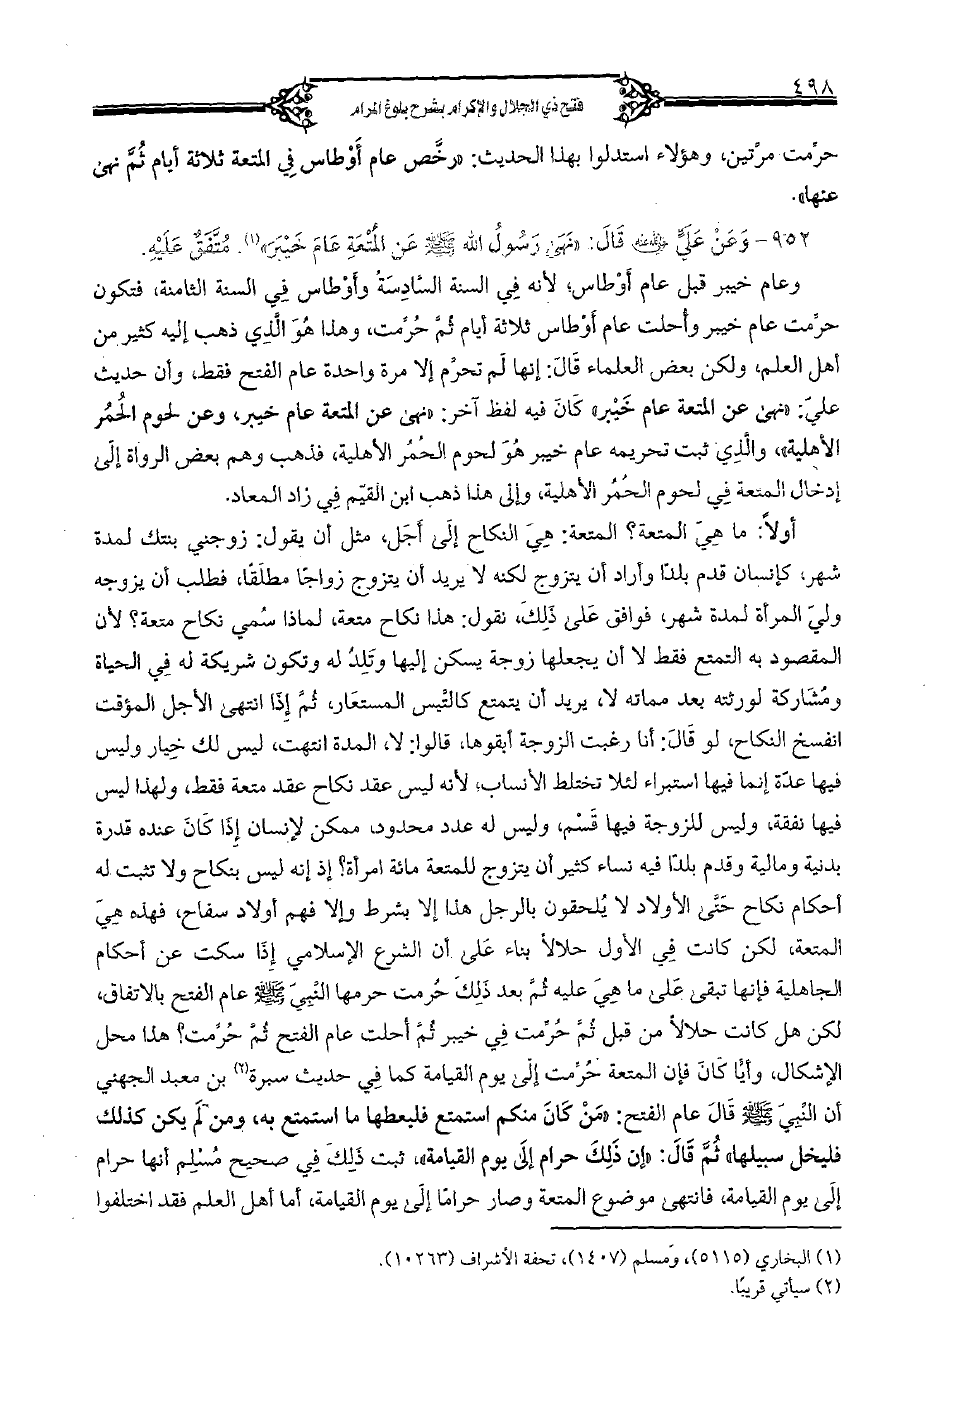 ٤٩٨
فتح ذي الجلال والإكرام بشرح بلوغ المرام
حرِّمت مرَّتين، وهؤلاء استدلوا بهذا الحديث: «رخَّص عام أَوْطاس في المتعة ثلاثة أيام ثُمَّ نهىٰ
عنها».
٩٥٢- وَعَنْ عَلَيٍّ ﵁ قَالَ: «نَهَىٰ رَسُولُ الله ﷺ عَنِ الْمُتْعَةِ عَامَ خَيْبَرَ»(١). مُتَّفَقٌ عَلَيْهِ.
وعام خيبر قبل عام أَوْطاس؛ لأنه فِي السنة السَّادِسَةُ وأَوْطاس فِي السنة الثامنة، فتكون
حرِّمت عام خيبر وأُحلت عام أَوْطاس ثلاثة أيام ثُمَّ حُرِّمت، وهذا هُوَ الَّذِي ذهب إليه كثير من
أهل العلم، ولكن بعض العلماء قَالَ: إنها لَم تحرَّم إلا مرة واحدة عام الفتح فقط، وأن حديث
عليّ: «نهىٰ عن المتعة عام خَيْبر» كَانَ فيه لفظ آخر: «نهىٰ عن المتعة عام خيبر، وعن لحوم الحُمُر
الأهلية»، والَّذِي ثبت تحريمه عام خيبر هُوَ لحوم الحُمُر الأهلية، فذهب وهم بعض الرواة إلَى
إدخال المتعة فِي لحوم الحُمُر الأهلية، وإلى هذا ذهب ابن القيِّم فِي زاد المعاد.
أولاً: ما هِيَ المتعة؟ المتعة: هِيَ النكاح إلَىٰ أَجَل، مثل أن يقول: زوجني بنتك لمدة
شهر، كإنسان قدم بلدًا وأراد أن يتزوج لكنه لا يريد أن يتزوج زواجًا مطلقًا، فطلب أن يزوجه
وليّ المرأة لمدة شهر، فوافق عَلَىٰ ذَلِكَ، نقول: هذا نكاح متعة، لماذا سُمي نكاح متعة؟ لأن
المقصود به التمتع فقط لا أن يجعلها زوجة يسكن إليها وتَلِدُ له وتكون شريكة له فِي الحياة
ومُشاركة لورثته بعد مماته لا، يريد أن يتمتع كالتَّيس المستعَار، ثُمَّ إِذَا انتهىٰ الأجل المؤقت
انفسخ النكاح، لو قَالَ: أنا رغبت الزوجة أبقوها، قالوا: لا، المدة انتهت، ليس لك خيار وليس
فيها عدّة إنما فيها استبراء لئلا تختلط الأنساب؛ لأنه ليس عقد نكاح عقد متعة فقط، ولهذا ليس
فيها نفقة، وليس للزوجة فيها قَسْم، وليس له عدد محدود، ممكن لإنسان إِذَا كَانَ عنده قدرة
بدنية ومالية وقدم بلدًا فيه نساء كثير أن يتزوج للمتعة مائة امرأة؟ إذ إنه ليس بنكاح ولا تثبت له
أحكام نكاح حَتَّىٰ الأولاد لا يُلحقون بالرجل هذا إلا بشرط وإلا فهم أولاد سفاح، فهذه هِيَ
المتعة، لكن كانت فِي الأول حلالاً بناء عَلَىٰ أن الشرع الإسلامي إِذَا سكت عن أحكام
الجاهلية فإنها تبقى عَلَىٰ ما هِيَ عليه ثُمَّ بعد ذَلِكَ حُرمت حرمها النَّبِيّ ﷺ عام الفتح بالاتفاق،
لكن هل كانت حلالاً من قبل ثُمَّ حُرِّمت فِي خيبر ثُمَّ أحلت عام الفتح ثُمَّ حُرِّمت؟ هذا محل
الإشكال، وأيًّا كَانَ فإن المتعة حُرِّمت إلَىٰ يوم القيامة كما فِي حديث سبرة(٢) بن معبد الجهني
أن النَّبِيّ ﷺ قَالَ عام الفتح: «مَنْ كَانَ منكم استمتع فليعطها ما استمتع به، ومن لَم يكن كذلك
فليخل سبيلها» ثُمَّ قَالَ: «إن ذَلِكَ حرام إلَىٰ يوم القيامة»، ثبت ذَلِكَ فِي صحيح مُسْلِم أنها حرام
إلَىٰ يوم القيامة، فانتهىٰ موضوع المتعة وصار حرامًا إلَىٰ يوم القيامة، أما أهل العلم فقد اختلفوا
(١) البخاري (٥١١٥)، ومسلم (١٤٠٧)، تحفة الأشراف (١٠٢٦٣).
(٢) سيأتي قريبًا.